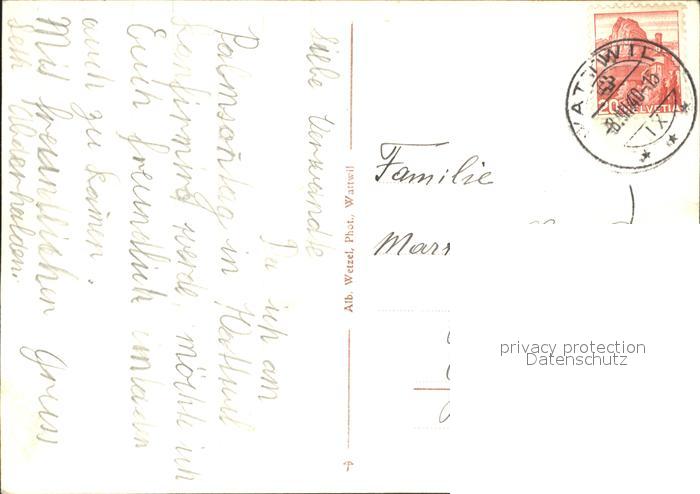 Liebe Verwandte
Da ich am
Palmsontag in Wattwil
konfirmird werde, möcht ich
Euch freundlich einladen
auch zu kommen.
Mit freundlichen Gruss
Sch Abderhalden.
Alb. Wetzel, Phot., Wattwil
Familie
Mar
WATTWIL
8.III.40-13
IX
20 HELVETIA
privacy protection
Datenschutz